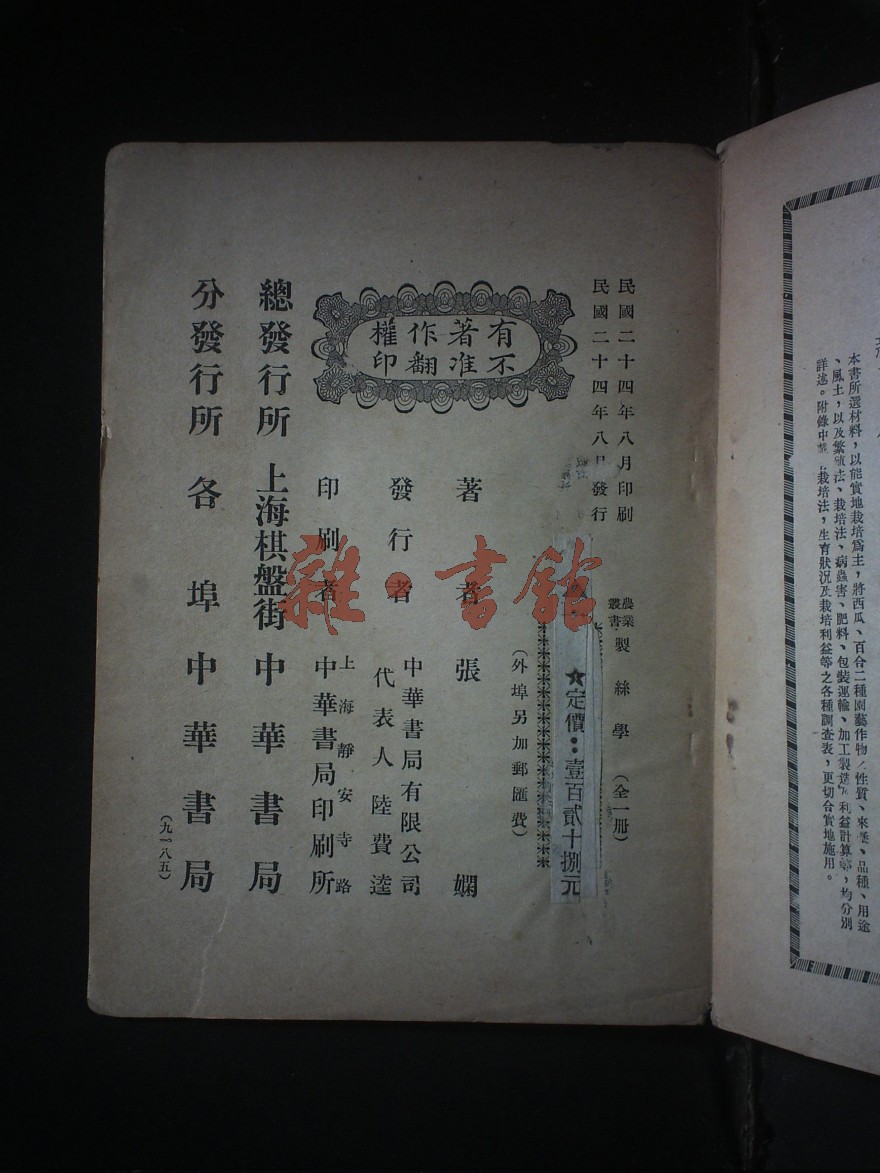 本書所選材料，以能實地栽培爲主，將西瓜、百合二種園藝作物
、風土，以及繁殖法、栽培法、病蟲害、肥料、包裝運輸、加工製造
詳述。附錄中
栽培法，生育狀況及栽培利益等之各種調查表，更切合實地施用。
民國二十四年八月印刷
民國二十四年八月發行
農業叢書 製絲學（全一册）
☆定價：壹百貳十捌元
（外埠另加郵匯費）
有著作權
不准翻印
著者 張嫻
發行者 中華書局有限公司
代表人陸費逵
印刷者 上海靜安寺路
中華書局印刷所
總發行所 上海棋盤街 中華書局
分發行所 各埠 中華書局
（九一八五）
雜·書館